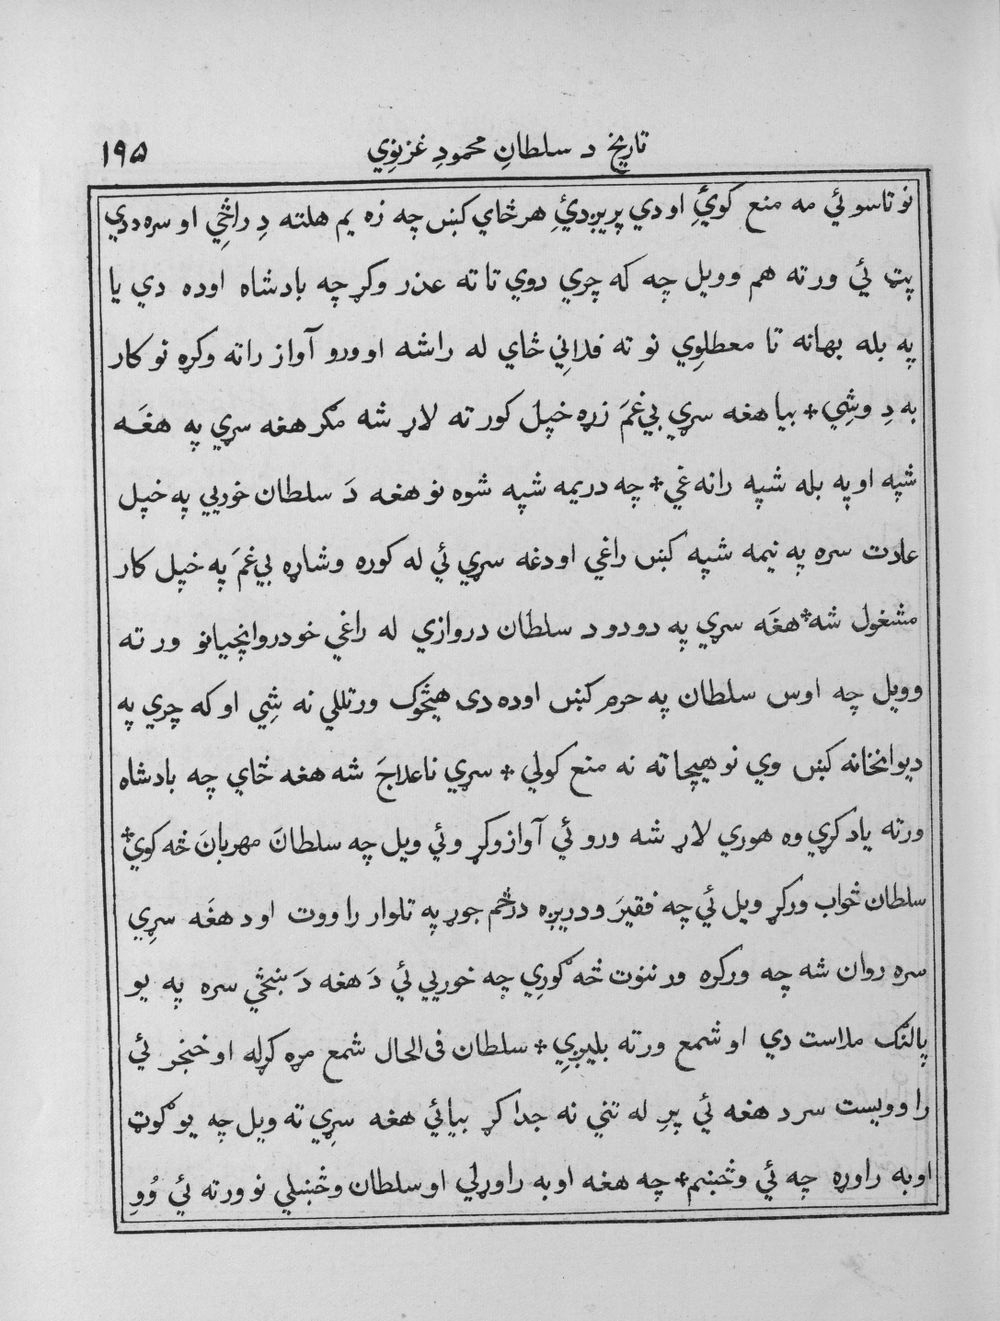 تاريخ د سلطانِ محمودِ غزنوِي ۱۹۵
نو تاسو ئي مه منع كوئِ او دي پريږدئِ هر ځاي كښ چه زه يم هلته دِ راځِي او سره ددي
پټ ئي ورته هم وويل چه كه چري دوي تا ته عذر وكړ چه بادشاه اوده دي يا
په بله بهانه تا معطلوِي نو ته فلانِي ځاي له راشه او ورو آواز راته وكړه نو كار
به دِ وشِي * بيا هغه سړي بي غمَ زړه خپل كور ته لاړ شه مګر هغه سړي په هغَه
شپه او په بله شپه رانه غي * چه دريمه شپه شوه نو هغه دَ سلطان خوريي په خپل
عادت سره په نيمه شپه كښ راغي او دغه سړي ئي له كوره وشاړه بي غمَ په خپل كار
مشغول شه * هغَه سړي په دو دو د سلطان دروازي له راغي خو دروانچيانو ورته
وويل چه اوس سلطان په حرم كښ اوده دی هيڅوک ورتللي نه شِي او كه چري په
ديوانخانه كښ وي نو هيچا ته نه منع كولي * سړي ناعلاجَ شه هغه ځاي چه بادشاه
ورته ياد كړي وه هوري لاړ شه ورو ئي آواز وكړ وئي ويل چه سلطانَ مهربانَ څه كوي *
سلطان ځواب وركړ ويل ئي چه فقيرَ ودريږه درځم جوړ په تلوار راووت او د هغَه سړِي
سره روان شه چه وركره ورننوت څه ګورِي چه خوريي ئي دَ هغه دَ ښځي سره په يو
پالنګ ملاست دي او شمع ورته بليږِي * سلطان فی الحال شمع مړه كړله او خنجر ئي
را وويست سر د هغه ئي پرِ له تنِي نه جدا كړ بيا ئي هغه سړِي ته ويل چه يو ګوټ
اوبه راوړه چه ئي وڅښم * چه هغه اوبه راوړلي او سلطان وڅښلي نو ورته ئي وُوِ